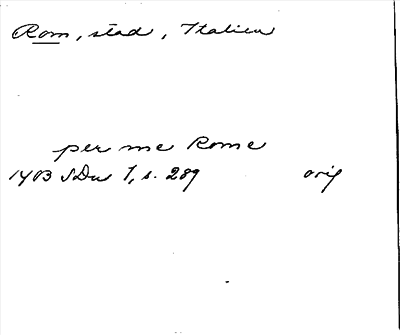 Rom, stad, Italien
per me Rome
1403 SDns 1, s. 289 orig